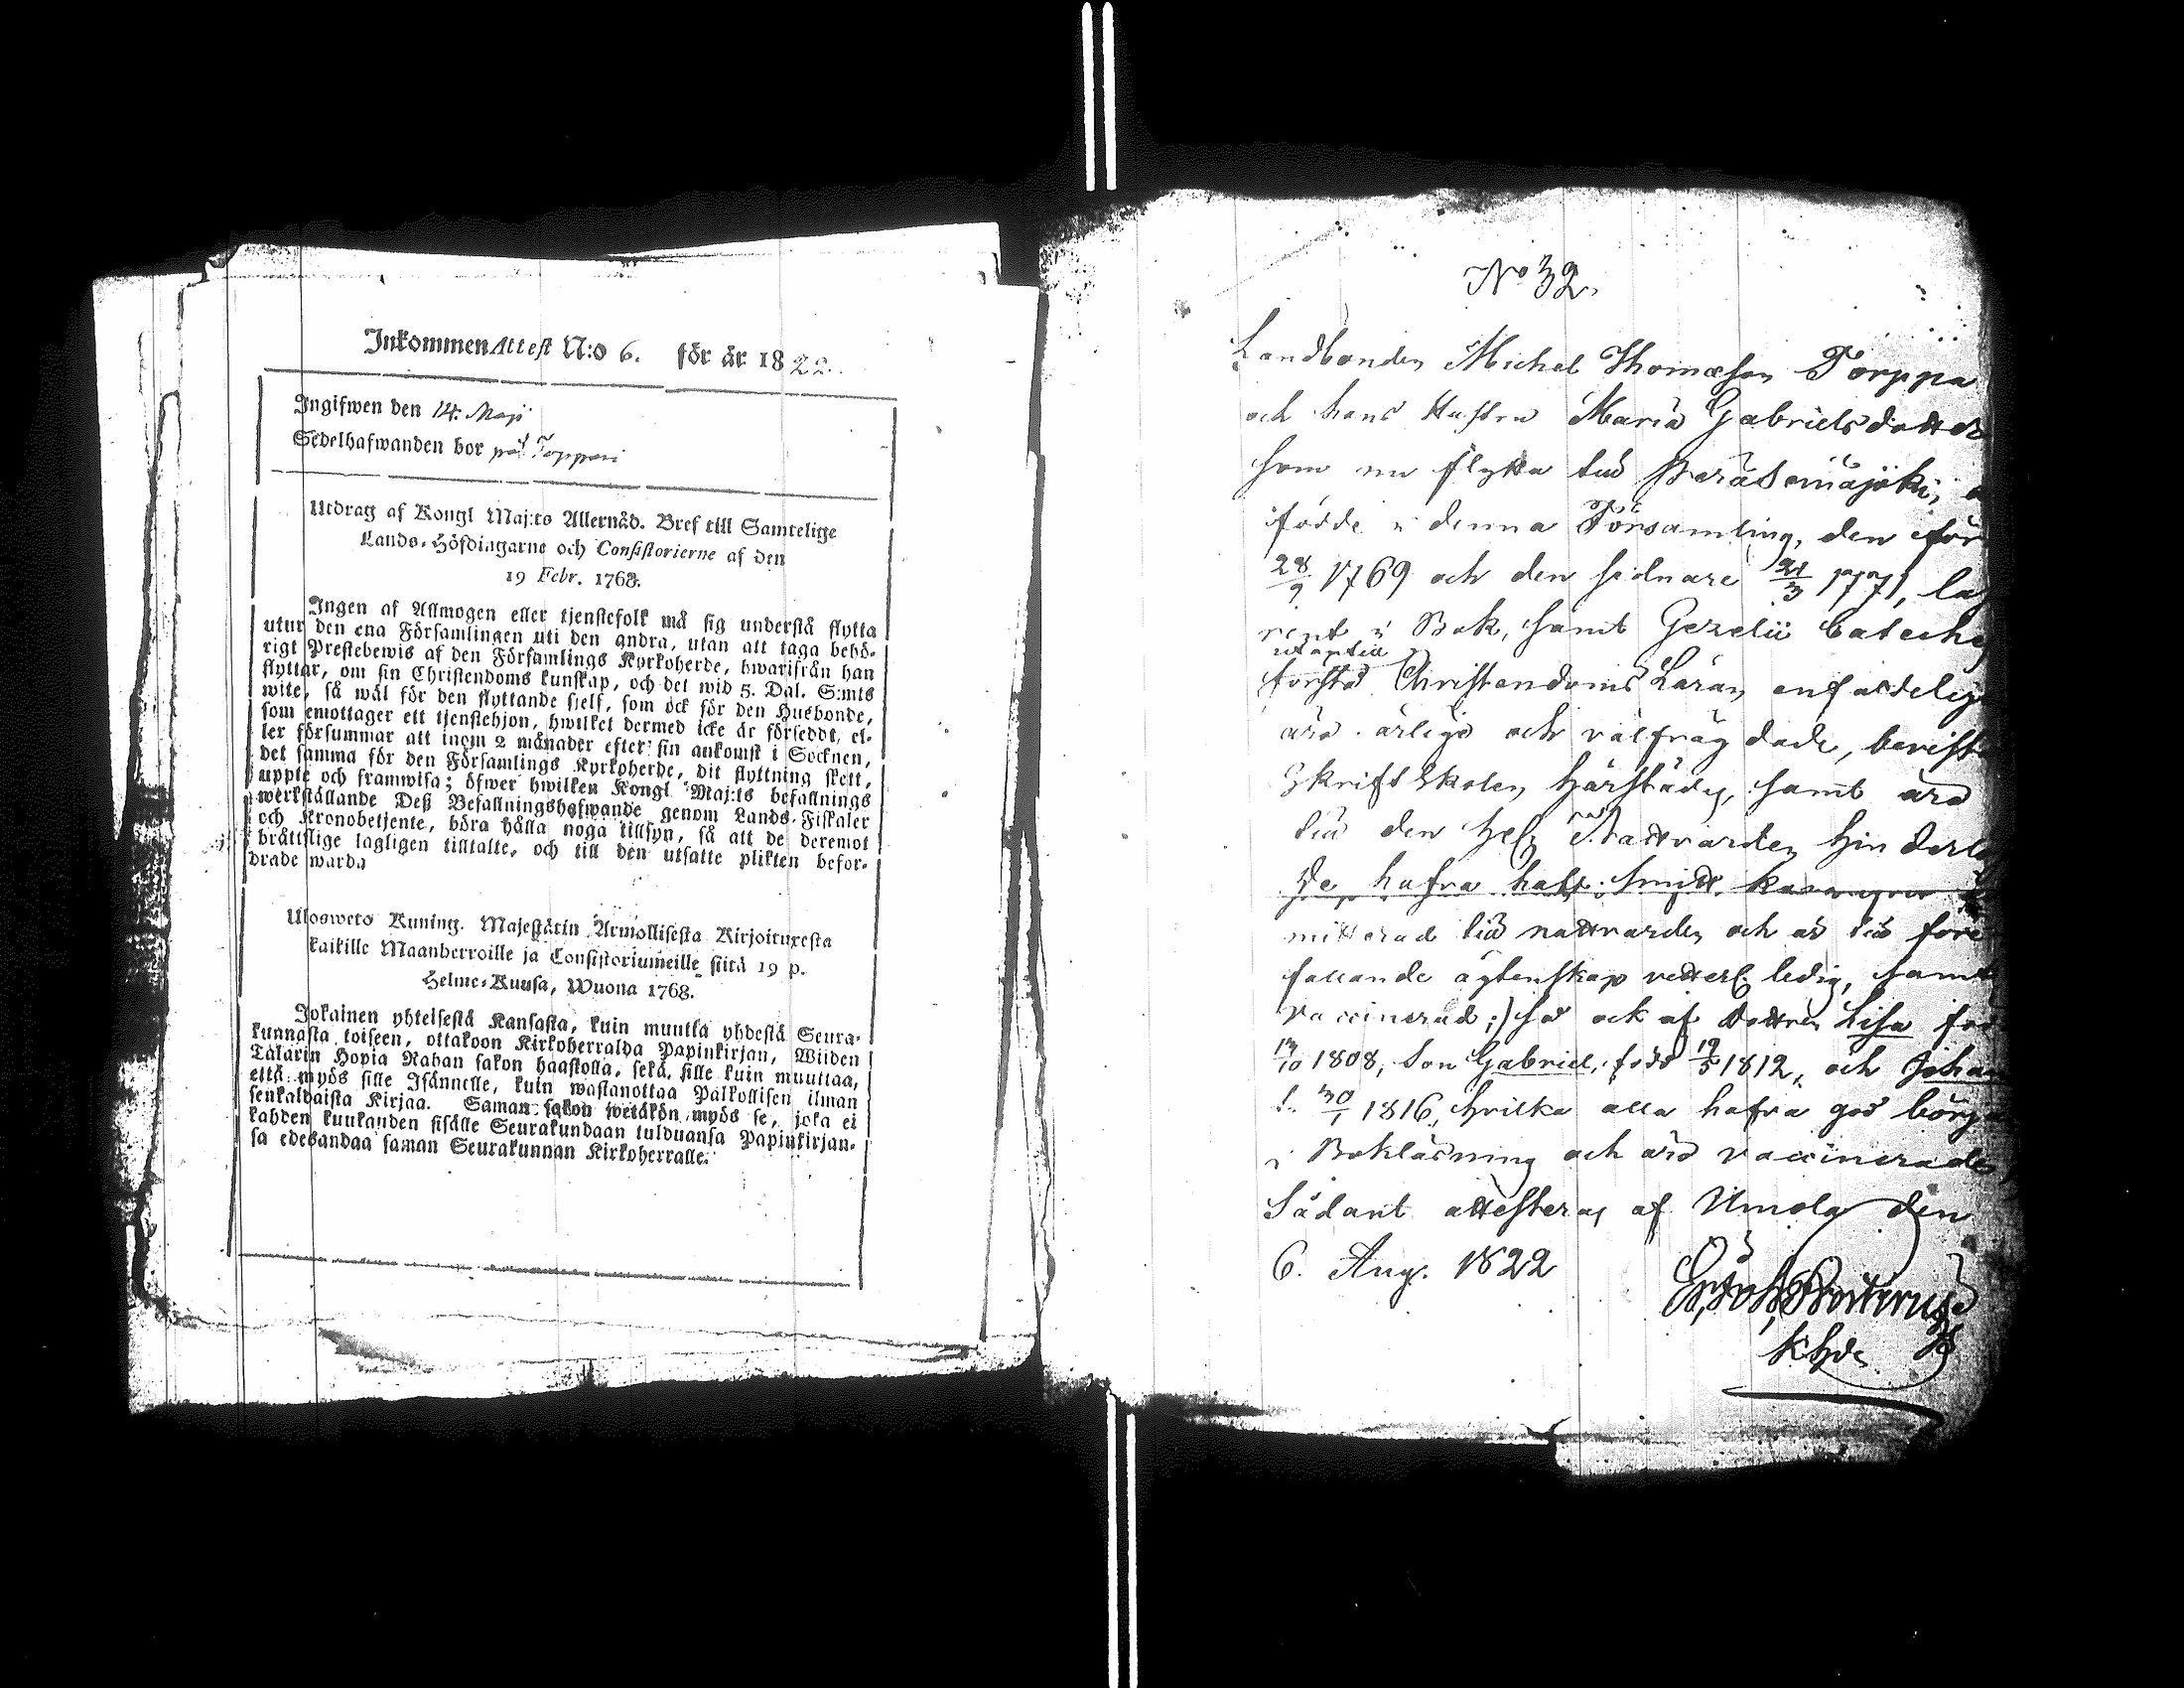 Inkommen Attest N:o 6. för år 1822.
Ingifwen den 14. Maji
Sedelhafwanden bor på Toppari
Utdrag af Kongl Maj:ts Allernåd. Bref till Samtelige
Lands-Höfdingarne och Consistorierne af den
19 Febr. 1768.
Ingen af Allmogen eller tjenstefolk må sig understå flytta
utur den ena Församlingen uti den andra, utan att taga behö-
rigt Prestebewis af den Församlings Kyrkoherde, hwarifrån han
flyttar, om sin Christendoms kunskap, och det wid 5. Dal. S:mts
wite, så wäl för den flyttande sjelf, som öck för den Husbonde,
som emottager ett tjenstehjon, hwilket dermed icke är förseddt, el-
ler försummar att inom 2 månader efter sin ankomst i Socknen,
det samma för den Församlings Kyrkoherde, dit flyttning skett,
uppte och framwisa; öfwer hwilken Kongl Maj:ts befallnings
werkställande Deß Befallningshafwande genom Lands-Fiskaler
och Kronobetjente, böra hålla noga tillsyn, så att de deremot
bråttslige lagligen tilltalte, och till den utsatte plikten befor-
drade warda
Uloswets Kuning. Majestätin Armollisesta Kirjoituxesta
kaikille Maanherroille ja Consistoriumeille siitä 19 p.
Helme-Kuusa, Wuona 1768.
Jokainen yhteisestä Kansasta, kuin muutta yhdestä Seura-
kunnasta toiseen, ottakoon Kirkoherralda Papinkirjan, Wiiden
Talarin Hopia Rahan sakon haastolla, sekä sille kuin muuttaa,
että myös sille Isännelle, kuin wastanottaa Palkollisen ilman
senkaldaista Kirjaa. Saman sakon wetäkön myös se, joka ei
kahden kuukauden sisälle Seurakundaan tulduansa Papinkirjan-
sa edesandaa saman Seurakunnan Kirkoherralle.
No 32.
Landbonden Michel Thomæson Torppa
och hans Hustru Maria Gabrielsdotter
som nu flytta till Peräseinäjoki,
födde i denna Församling, den för
28/9 1769 och den sednare 21/3 1771, läs
rent i Bok, samt Gezelii Catech
förstå Christendoms Läran enfaldelig
äro ärlige och välfrägdade, bevista
Skriftskolen härstädes, samt äro
till den Hel. Nattvarden hinderl
De hafva haft
mitterad till nattvarden och är till före
fallande ägtenskap vetterl. ledig, samt
vaccinerad ;) så ock af dottren Lisa föd
13/10 1808, Son Gabriel, född 12/5 1812, och Johan
f. 30/1 1816, hvilka alla hafva god börja
i Bokläsning och äro vaccinerade
Sådant attesteras af Umola den
6. Aug. 1822
Khde